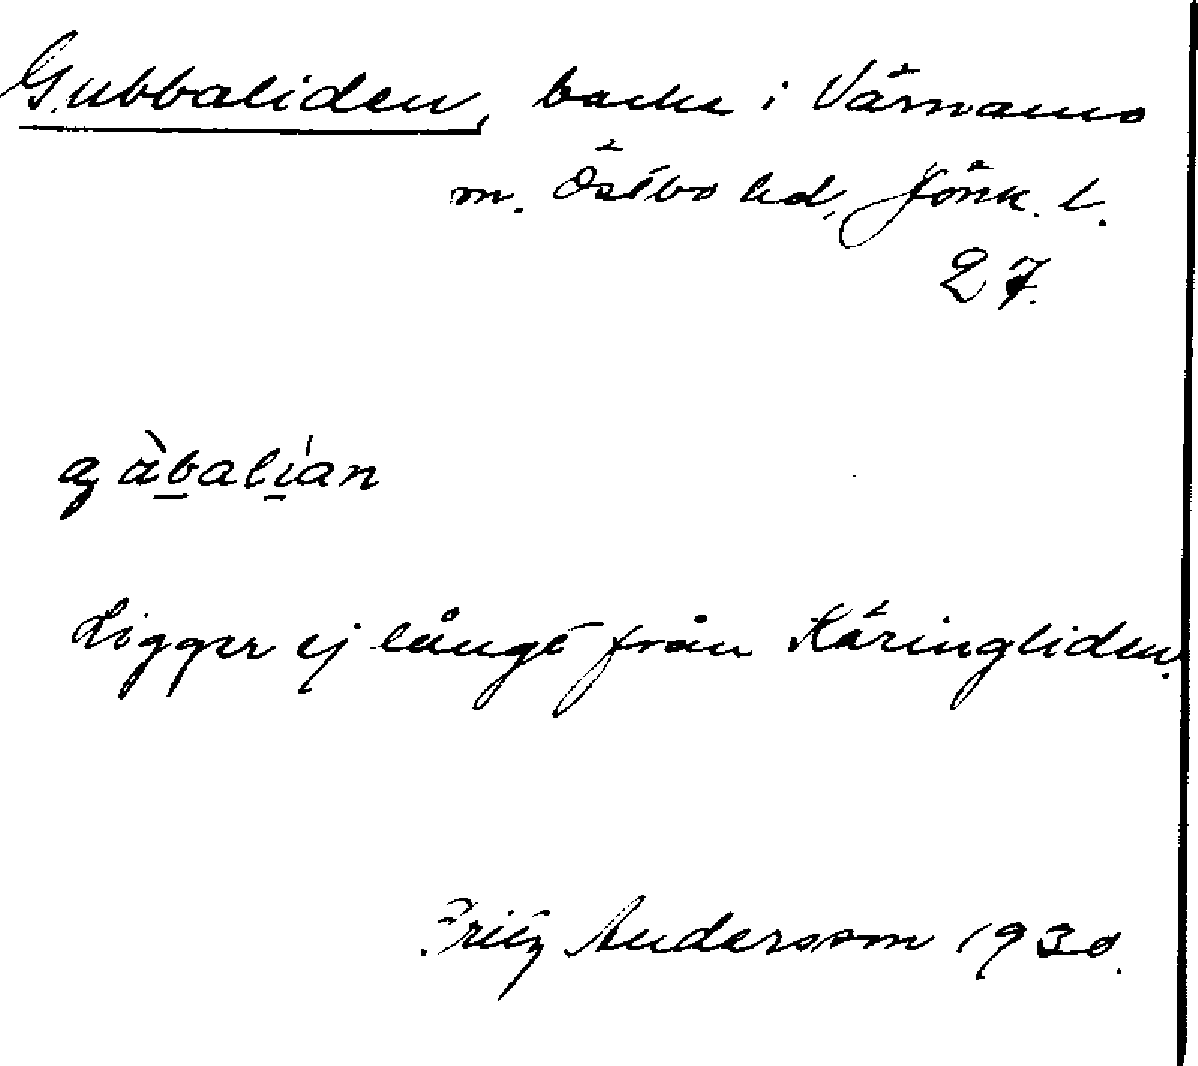 Gubbaliden, backe i Värnamo
m. Östbo hd, Jönk. l.
27.
gàbalían
Ligger ej långt från Käringliden.
Fritz Andersson 1930.